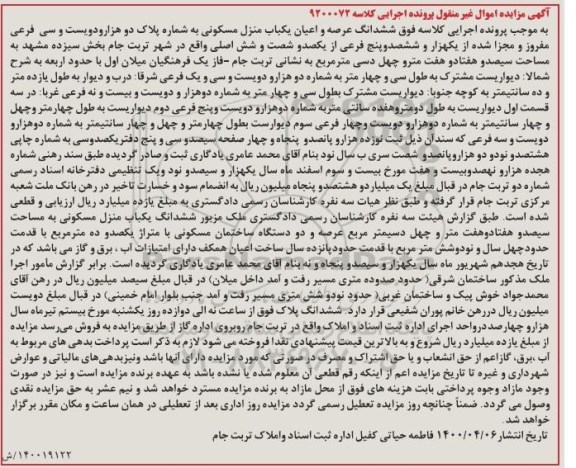 آگهی مزایده اموال غیر منقول پرونده اجرایی کلاسه ۹۲۰۰۰۷۳
به موجب پرونده اجرایی کلاسه فوق ششدانگ عرصه و اعیان یکباب منزل مسکونی به شماره پلاک دو هزارودویست و سی فرعی
مفروز و مجزا شده از یکهزار و ششصدوپنج فرعی از یکصدو شصت و شش اصلی واقع در شهر تربت جام بخش سیزده مشهد به
مساحت سیصدو هفتادو هفت مترو چهل دسی مترمربع به نشانی تربت جام -فاز یک فرهنگیان میلان اول با حدود اربعه به شرح
شمالا: دیواریست مشترک به طول سی و چهار متر به شماره دو هزارو دویست و سی و یک فرعی شرقا: درب و دیوار به طول یازده متر
و ده سانتیمتر به کوچه جنوبا: دیواریست مشترک بطول سی و چهار متر به شماره دوهزار و دویست و بیست و نه فرعی غربا: در سه
قسمت اول دیواریست به طول دومتروهفده سانتی متربه شماره دوهزارو دویست وپنج فرعی دوم دیواریست به طول چهارمتر وچهل
و چهار سانتیمتر به شماره دوهزارو دویست وچهار فرعی سوم دیوارست بطول چهارمتر و چهل و چهار سانتیمتر به شماره دوهزارو
دویست و سه فرعی که سندآن ذیل ثبت نوزده هزارو پانصدو پنجاه و چهار صفحه سیصدو سی و پنج دفتریکصدوسی به شماره چاپی
هشتصدو نودو دو هزاروپانصدو شصت سری ب سال نود بنام آقای محمد عامری یادگاری ثبت و صادر گردیده طبق سند رهنی شماره
هجده هزارو نهصدوبیست و هفت مورخ بیست و سوم اسفند ماه سال یکهزار و سیصدو نود ویک تنظیمی دفترخانه اسناد رسمی
شماره دو تربت جام در قبال مبلغ یک میلیاردو هشتصدو پنجاه میلیون ریال به انضمام سود و خسارت تاخیر در رهن بانک ملت شعبه
مرکزی تربت جام قرار گرفته و طبق نظر هیات سه نفره کارشناسان رسمی دادگستری به مبلغ یازده میلیارد ریال ارزیابی و قطعی
شده است. طبق گزارش هیئت سه نفره کارشناسان رسمی دادگستری ملک مزبور ششدانگ یکباب منزل مسکونی به مساحت
سیصدو هفتادوهفت متر و چهل دسیمتر مربع عرصه و دو دستگاه ساختمان مسکونی با متراژ یکصدو ده مترمربع با قدمت
حدودچهل سال و نودوشش متر مربع با قدمت حدودپانزده سال ساخت اعیان همکف دارای امتیازات آب ، برق و گاز می باشد که در
تاریخ هجدهم شهریور ماه سال یکهزارو سیصدو پنجاه و نه بنام آقای محمد عامری یادگاری گردیده است. برابر گزارش مامور اجرا
ملک مذکور ساختمان شرقی( حدود صدوده متری مسیر رفت و آمد داخل میلان) در قبال مبلغ سیصد میلیون ریال در رهن آقای
محمدجواد خوش پیک و ساختمان غربی( حدود نودو شش متری مسیر رفت و آمد جنب بلوار امام خمینی) در قبال مبلغ دویست
میلیون ریال دررهن خانم پوران شفیعی قرار دارد. ششدانگ پلاک فوق از ساعت نه الی دوازده روز یکشنبه مورخ بیستم تیرماه سال
هزارو چهارصددرواحد اجرای اداره ثبت اسناد و املاک واقع در تربت جام روبروی اداره گاز از طریق مزایده به فروش می‌رسد مزایده
از مبلغ یازده میلیارد ریال شروع و به بالاترین قیمت پیشنهادی نقدا فروخته می شود لازم به ذکر است پرداخت بدهی های مربوط به
آب ،برق، گازاعم از حق انشعاب و یا حق اشتراک و مصرف در صورتی که مورد مزایده دارای آنها باشد ونیزبدهی‌های مالیاتی و عوارض
شهرداری و غیره تا تاریخ مزایده اعم از اینکه رقم قطعی آن معلوم شده یا نشده باشد به عهده برنده مزایده است و نیز در صورت
وجود مازاد وجوه پرداختی بابت هزینه های فوق از محل مازاد به برنده مزایده مسترد خواهد شد و نیم عشر به حق مزایده نقدی
وصول می گردد. ضمناً چنانچه روز مزایده تعطیل رسمی گردد مزایده روز اداری بعد از تعطیلی در همان ساعت و مکان مقرر برگزار
خواهد شد.
تاریخ انتشار ۱۴۰۰/۰۴/۰۶ فاطمه حیاتی کفیل اداره ثبت اسناد واملاک تربت جام
۱۴۰۰۱۹۱۲۲/ش